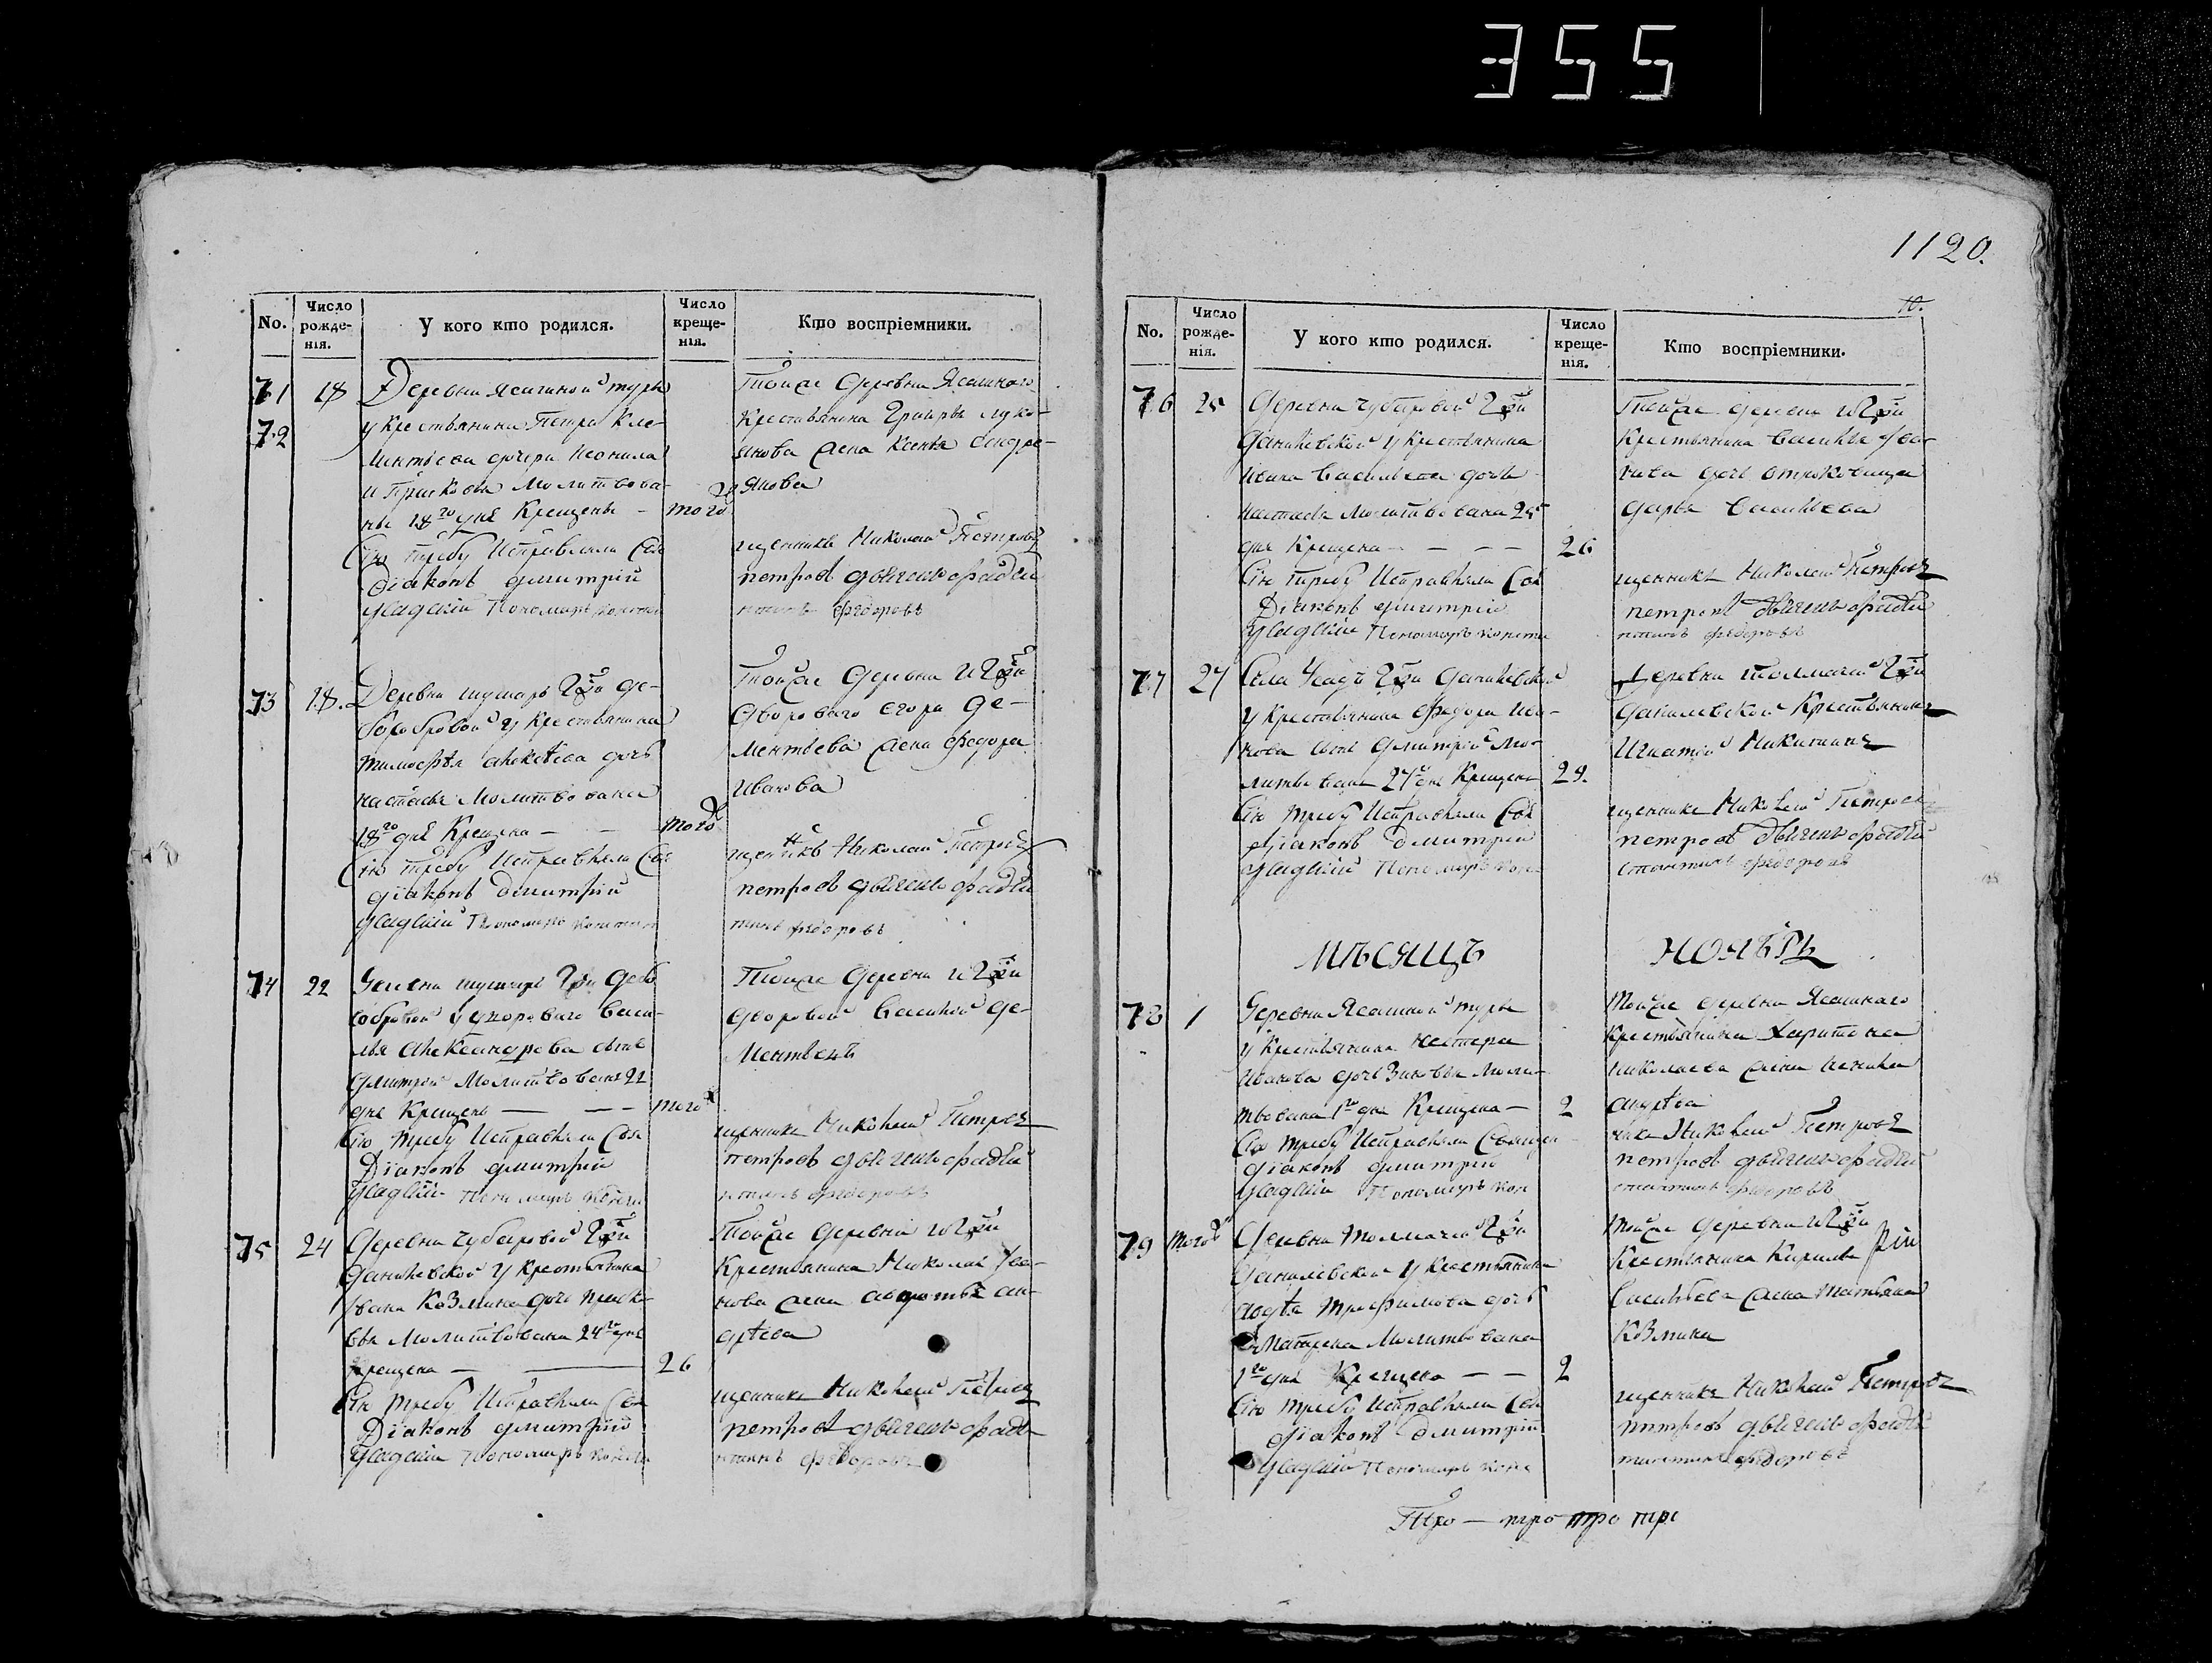 355
1120.
10.
No.
Число рожде-нія.
У кого кто родился.
Число креще-нія.
Кто воспріемники.
71 18 Деревни Ясашной туры
72 у крестьянина Петра Кле-
ментьева дочери Неонила
и Прасковья молитвова-
ны 18го дня Крещены – того ж
Сію требу исправляли Свя
Діаконъ Дмитрій
Усадскій Пономарь Констан
Тойже деревни Ясашнаго
крестьянина
янова жена Ксенья Андре-
янова
щенникъ Николай Петровъ
петровъ дьячекъ фадѣй
тинъ федоровъ
73 18. Деревни шумаръ Гжи Де-
бособровой у крестьянина
тимофѣя алексѣева дочь
настасья молитвована
18го дня Крещена – того ж
Сію требу исправляли Свя
діаконъ дмитрій
Усадскій Пономарь Констан
Тойже деревни и Гжи
двороваго егора де-
ментьева жена федора
иванова
щенникъ Николай Петровъ
петровъ дьячекъ фадѣй
тинъ федоровъ
74 22 Деревни шумаръ Гжи Дебо
собровой у двороваго васи-
лья александрова сынъ
дмитрій молитвованъ 22
дня Крещенъ – – того ж
Сію требу исправляли Свя
Діаконъ дмитрій
Усадскій Пономарь Констан
Тойже деревни и Гжи
дворовой василій де-
ментьевъ
щенникъ Николай Петровъ
петровъ дьячекъ фадѣй
тинъ федоровъ
75 24 Деревни чубаровой Гжи
данилевской у крестьянина
Ивана Козмина дочь праско-
вья молитвована 24го дня
крещена – – 26
Сію требу исправляли Свя
Діаконъ дмитрій
Усадскій Пономарь Констан
Тойже деревни и Гжи
крестьянина Николая Ива-
нова жена авдотья ан-
дрѣева
щенникъ Николай Петровъ
петровъ дьячекъ фадѣй
тинъ федоровъ
No.
Число рожде-нія.
У кого кто родился.
Число креще-нія.
Кто воспріемники.
76 25 Деревни чубаровой Гжи
данилевской у крестьянина
ивана васильева дочь
настасья молитвована 25
дня Крещена – – – 26
Сію требу исправляли Свя
Діаконъ дмитрій
Усадскій Пономарь Констан
Тойже деревни и Гжи
крестьянина василья Ива-
нова дочь отроковица
дарья васильева
щенникъ Николай Петровъ
петровъ дьячекъ фадѣй
тинъ федоровъ
77 27 Села Усадъ Гжи данилевской
у крестьянина федора ива-
нова сынъ дмитрій мо-
литвованъ 27 дня Крещенъ 29.
Сію требу исправляли Свя
діаконъ дмитрій
усадскій Пономарь Кон
Деревни толмачей Гжи
данилевской Крестьянинъ
Игнатій Никитинъ
щенникъ Николай Петровъ
петровъ дьячекъ фадѣй
стантинъ федоровъ
МѢСЯЦЪ НОЯБРЬ
78 1 Деревни Ясашной туры
у крестьянина нестера
иванова дочь Зиновья моли-
твована 1го дня Крещена – 2
Сію требу исправляли Священ
діаконъ дмитрій
усадскій Пономарь Кон
тойже деревни Ясашнаго
крестьянина харитона
николаева жена
андрѣева
никъ Николай Петровъ
петровъ дьячекъ фадѣй
стантинъ федоровъ
79 того ж Деревни толмачей Гжи
данилевской у крестьянина
трофимова дочь
матрена молитвована
1го дня Крещена – – 2
Сію требу исправляли Свя
діаконъ дмитрій
усадскій Пономарь Конс
тойже деревни и Гжи
крестьянина Кирилы
васильева жена татьяна
Козмина
щенникъ Николай Петровъ
петровъ дьячекъ фадѣй
тантинъ федоровъ
Про – про про про